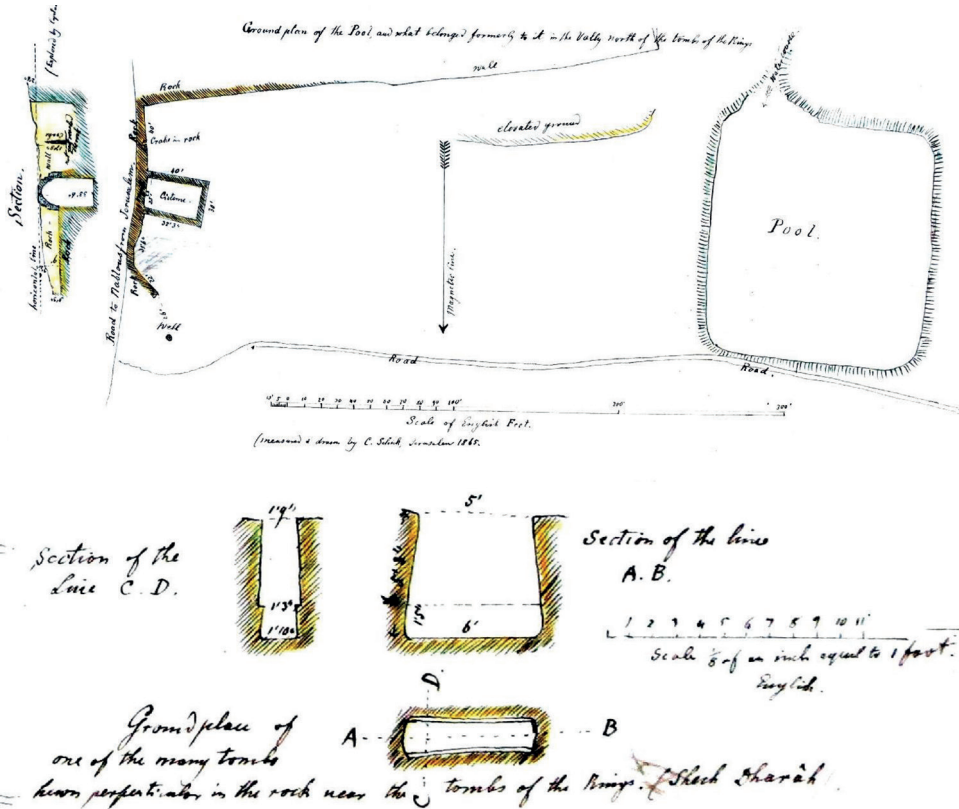 Ground plan of the Pool, and what belonged formerly to it in the Vally north of the tombs of the Kings
Section.
horizontal line
Rock
Rock
Road to Nablous from Jerusalem
Rock
Rock
Crabs in rock
40'
Cisterne
Rock
Well
wall
elevated ground
Magnetic line
Pool.
Road
Road.
10' 5 0 10 20 30 40 50 60 70 80 90 100' 200' 300'
Scale of English Feet.
(measured & drawn by C. Schick, Jerusalem 1865.
Section of the
Line C. D.
1'9"
1'3"
1'10"
5'
6'
Section of the line
A. B.
1 2 3 4 5 6 7 8 9 10 11
Scale 1/8 of an inch equal to 1 foot.
English.
D.
A
B
C
Groundplan of
one of the many tombs
hewn perperticular in the rock near the tombs of the Kings. (Shech Dharâh